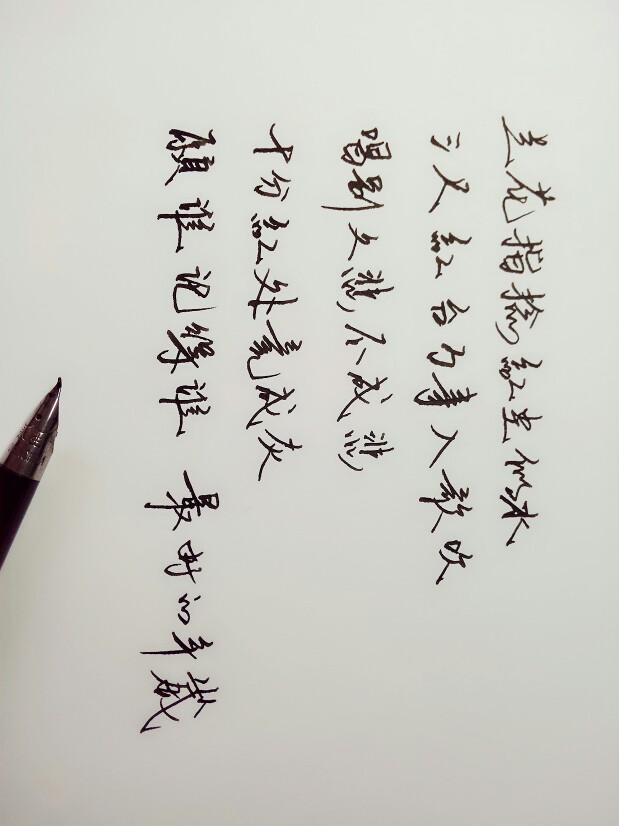 兰花指捻红尘似水
三尺红台万事入歌吹
唱别久悲不成悲
十分红处竟成灰
愿谁记得谁 最好的年岁